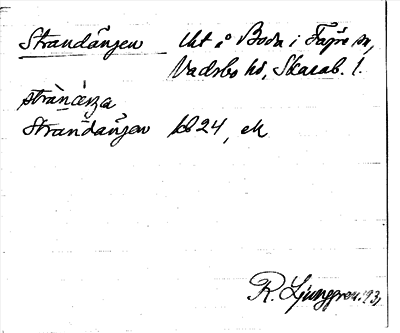 Strandängen Ut å Boda i Fägre sn,
Vadsbo hd, Skarab. l.
strànǽŋa
Strandängen kb 24, ek
R. Ljunggren. 93,